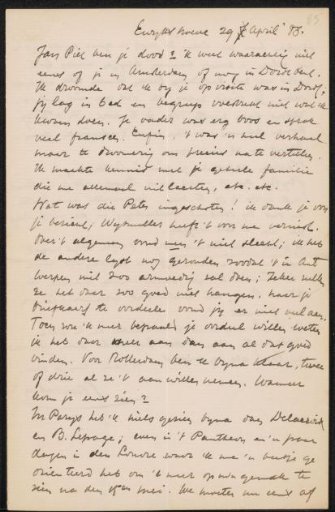 29 April '83.
Jan Piet ben je dood? 'k weet waarachtig niet
eens of je in Amsterdam of nog in Dordt bent.
'k droomde dat ik bij je op visite was in Dordt,
jij lag in bed en begreep volstrekt niet wat ik
kwam doen. Je vader was erg boos en sprak
veel fransch. Enfin, 't was 'n heel verhaal
maar te om precies na te vertellen.
'k maakte kennis met je geheele familie
die me allemaal uitlachten, etc. etc.
Wat was die Pater ingeschoten! ik dank je voor
je bericht; Wijsmuller heeft 't voor me vernist.
Over 't algemeen vond men 't niet slecht; ik heb
de andere lijst nog gevonden zoodat 't in Ant
werpen niet zoo armoedig zal doen; zeker zullen
ze het daar zoo goed niet hangen, naar je
briefkaart te oordeelen vond jij er niet veel aan.
Toen zou 'k meer bepaald je oordeel willen weten
ik heb daar meer aan dan aan al dat goed
vinden. Voor Rotterdam ben ik bijna klaar, twee
of drie al ze 't aan willen nemen. Wanneer
kom je eens zien?
In Parijs heb 'k niets gezien bijna dan Delacroix
en B. Lepage; even in 't Pantheon en 'n paar
dagen in den Louvre waar ik me 'n beetje ge
orienteerd heb om 't meer op m'n gemak te
zien na den Mei. We moeten nu eens af